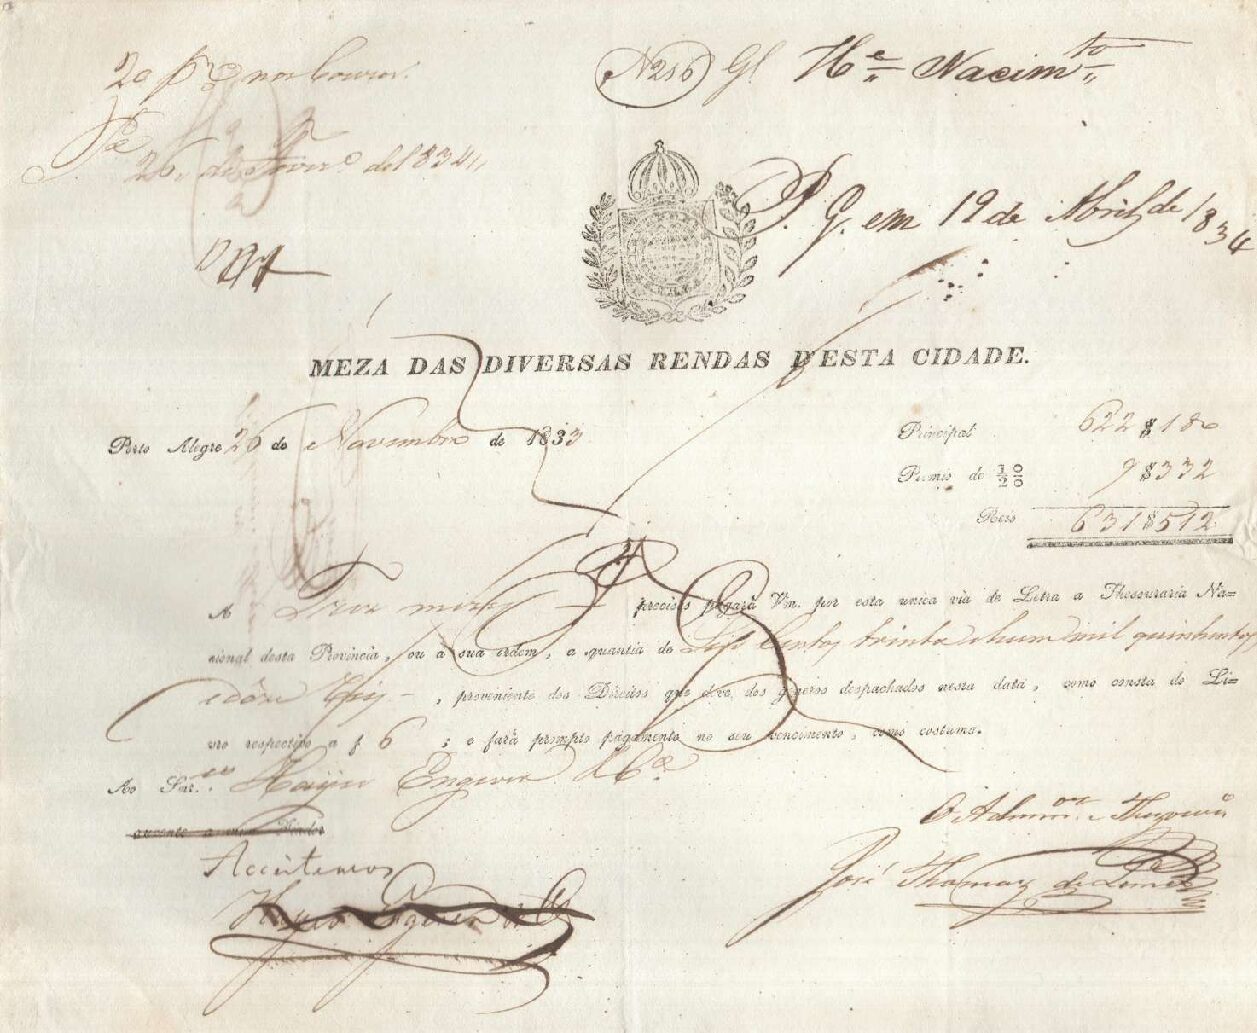 Nº 256 Gl Hᵉ Nacimᵗᵒ
26 de Fever.º de 1834
P. G. em 19 de Abril de 1834
MEZA DAS DIVERSAS RENDAS D'ESTA CIDADE.
Porto Alegre 26 de Novembro de 1833
Principal 622$180
Premio de ½ % 9$332
Reis 631$512
A Trez mezes precisos pagará Vm. por esta unica via de Letra a Thesouraria Na=
cional desta Provincia, ou á sua ordem, a quantia de Seis Centos trinta e hum mil quinhentos
e dôze Reis, proveniente dos Direitos que deve dos generos despachados nesta data, como consta do Li=
vro respectivo a f 6; e fará prompto pagamento no seu vencimento, como costuma.
Ao Snr.ᵉˢ & Cª
O Admin.ᵒʳ e Thezour.º
Acceitamos
José Thomaz de Lima